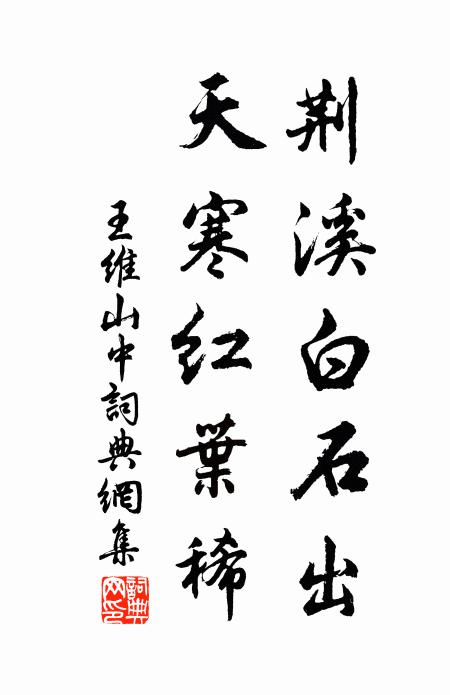 荆溪白石出
天寒紅葉稀
王維山中詞典網集
詞典
网印